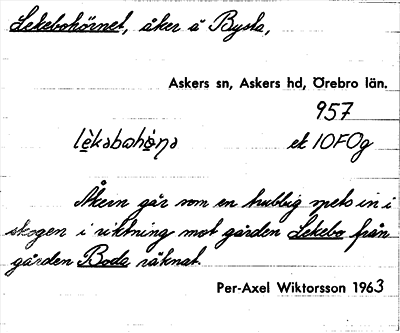 Lekebohörnet, åker å Bysta,
Askers sn, Askers hd, Örebro län.
957
ek 10F0g
Åkern går som en kubbig mets in i
skogen i riktning mot gården Lekebo från
gården Boda räknat.
Per-Axel Wiktorsson 1963